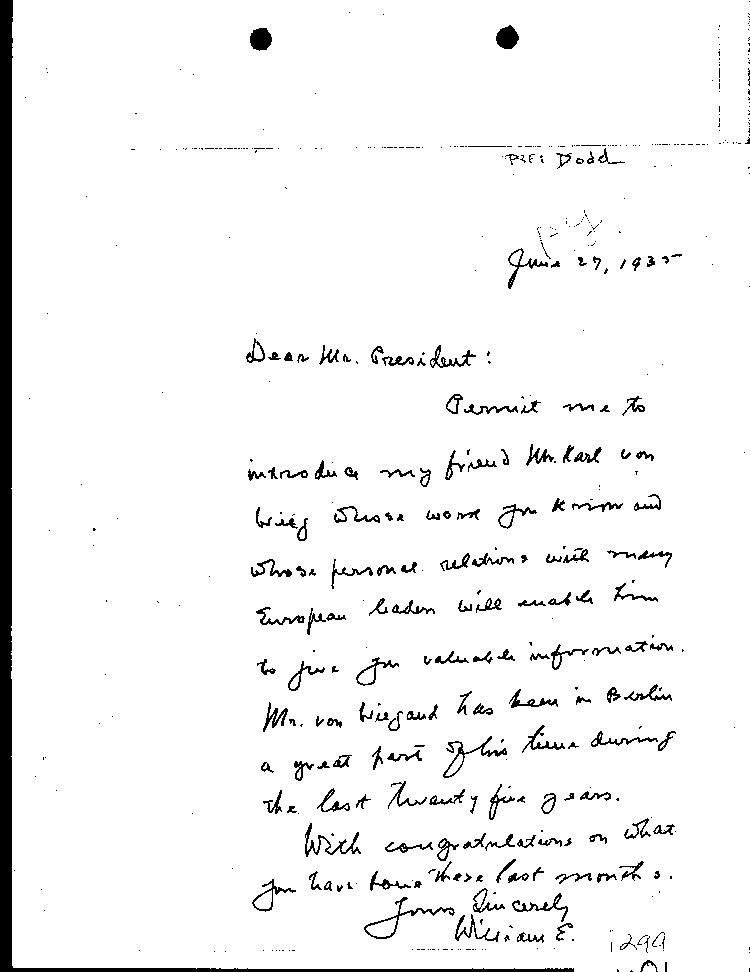 PSF: Dodd
June 27, 1935
Dear Mr. President:
Permit me to
introduce my friend Mr. Karl von
Wieg whose work you know and
whose personal relations with many
European leaders will enable him
to give you valuable information.
Mr. von Wiegand has been in Berlin
a great part of his time during
the last twenty five years.
With congratulations on what
you have done these last months.
Yours Sincerely
William E.
1299